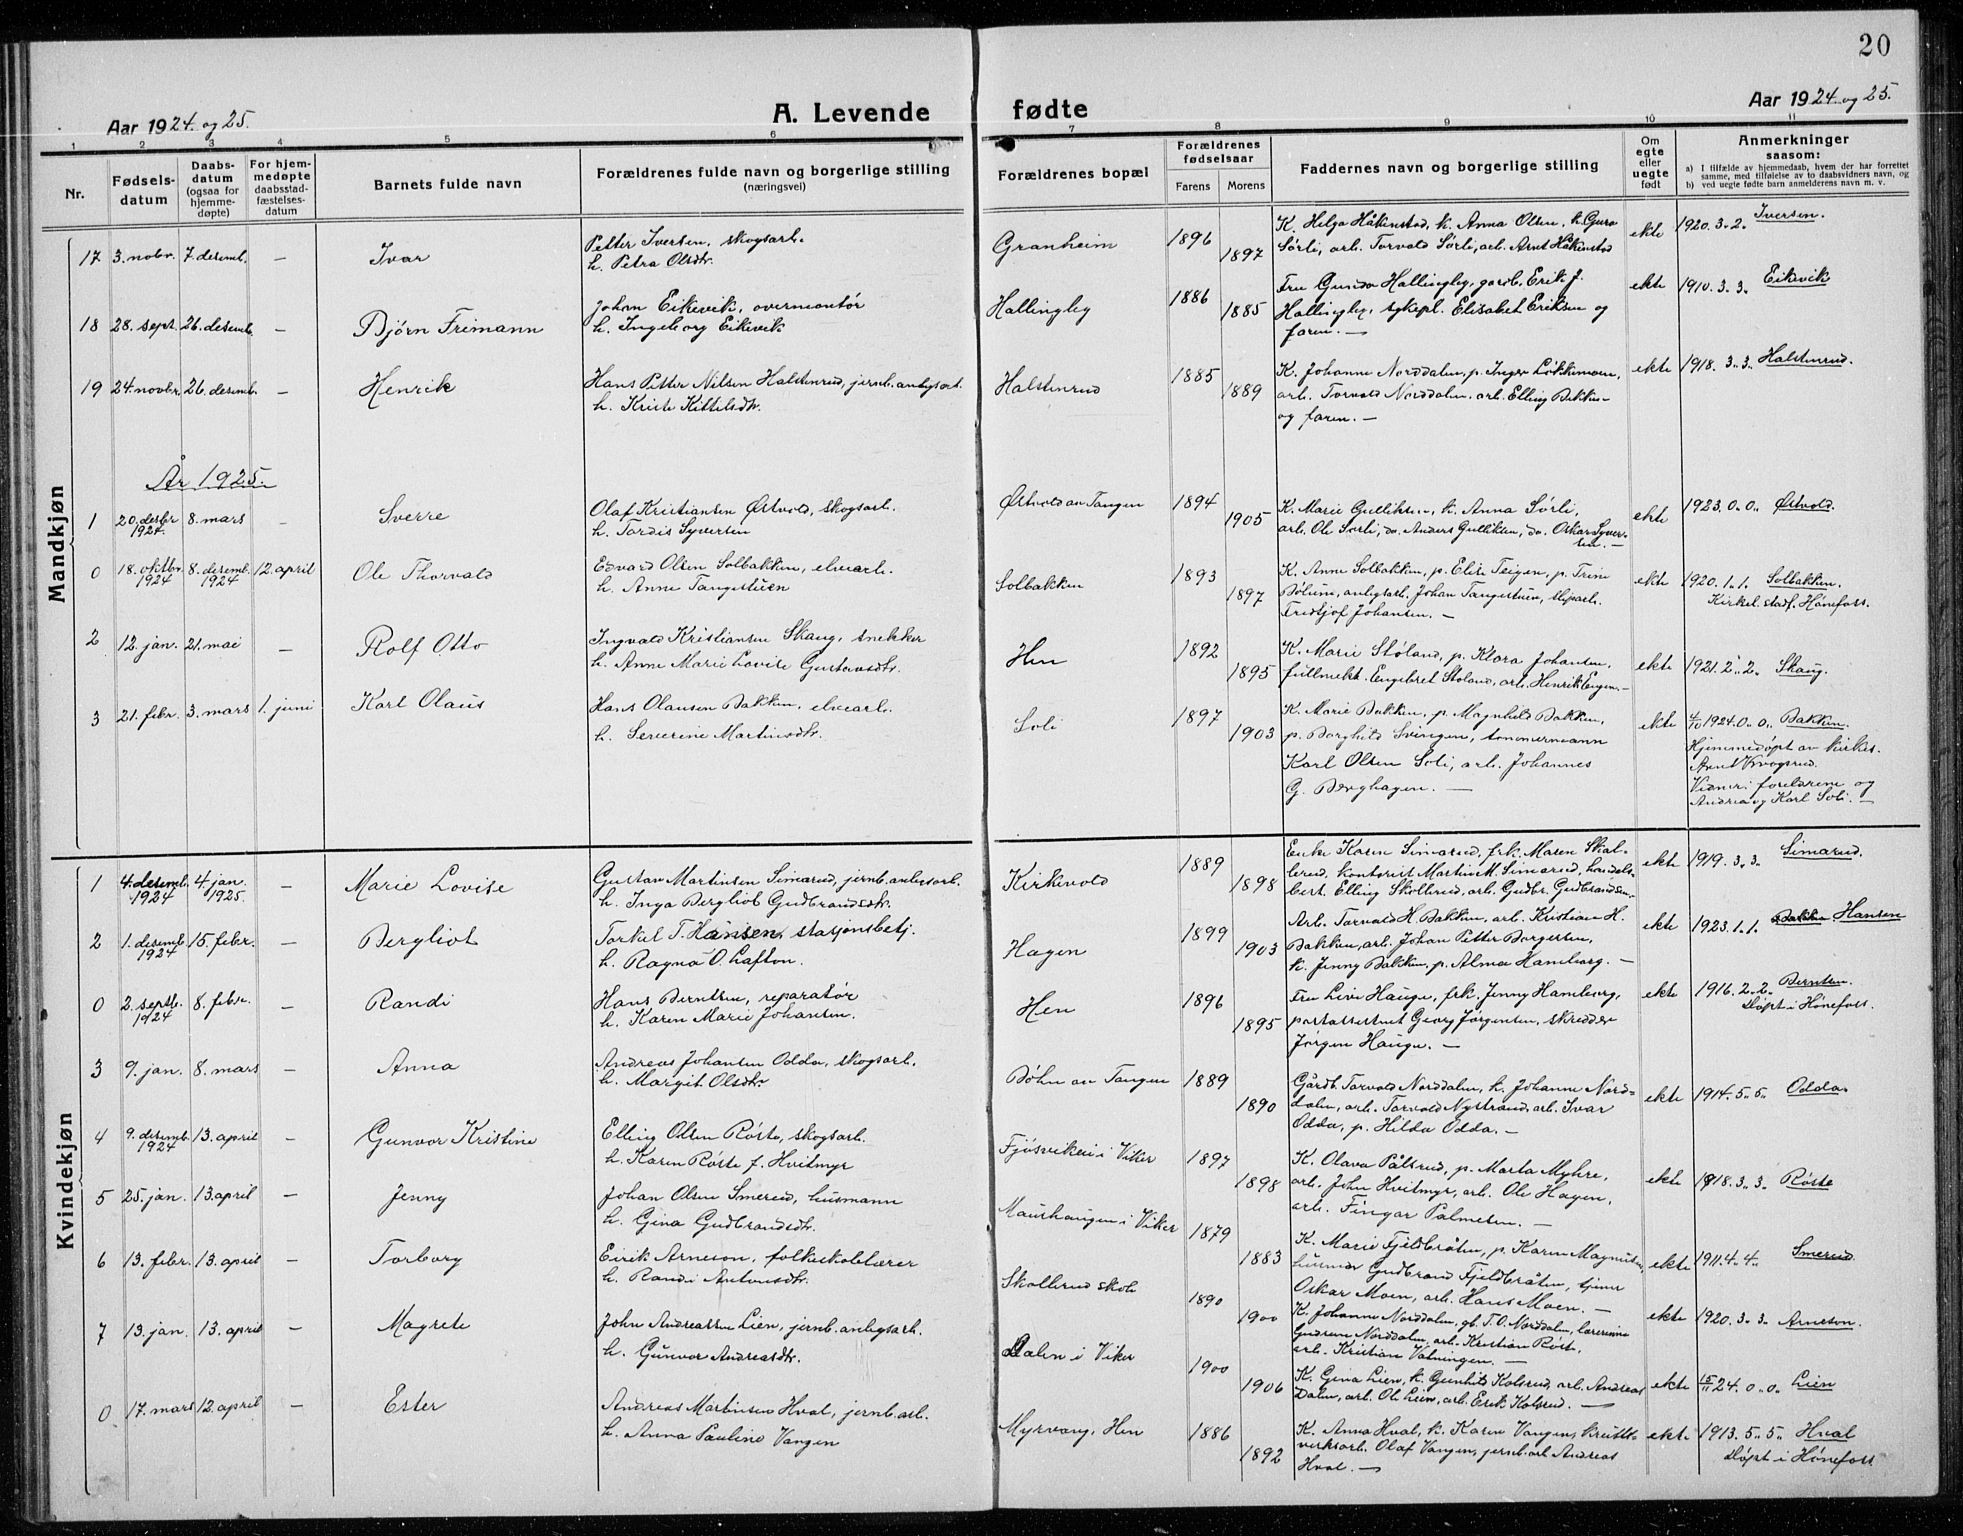 20
Aar 1924 og 25.
A. Levende fødte
Aar 1924 og 25.
1 2 3 4 5 6 7 8 9 10 11
Nr.
Fødsels-
datum
Daabs-
datum
(ogsaa for
hjemme-
døpte)
For hjem-
medøpte
daabsstad-
fæstelses-
datum
Barnets fulde navn
Forældrenes fulde navn og borgerlige stilling
(næringsvei)
Forældrenes bopæl
Forældrenes
fødselsaar
Farens Morens
Faddernes navn og borgerlige stilling
Om
egte
eller
uegte
født
Anmerkninger
saasom:
a) I tilfælde av hjemmedaab, hvem der har forrettet
samme, med tilføielse av to daabsvidners navn, og
b) ved uegte fødte barn anmelderens navn m. v.
Mandkjøn
17 3. nobr. 7. desemb. — Ivar
Petter Iversen, skogsarb.
h. Petra Olsdtr.
Granheim 1896 1897
K. Helga Håkenstad, k. Anna Olsen, k. Guro
Sørli, arb. Torvald Sørli, arb. Arnt Håkenstad
ekte 1920. 3. 2. Iversen.
18 28. sept. 26. desemb. — Bjørn Frimann
Johan Eikevik, overmontør
h. Ingeborg Eikevik
Hallingby 1886 1885
Fru Gunda Hallingby, gardb. Erik J.
Hallingby, sykepl. Elisabet Eriksen og
faren. —
ekte 1910. 3. 3. Eikevik
19 24. novbr. 26. desemb. — Henrik
Hans Petter Nilsen Halstenrud, jernb. anlegsarb.
h. Kriste Kittelsdtr.
Halstenrud 1885 1889
K. Johanne Norddalen, p. Inger Løkkemoen,
arb. Torvald Norddalen, arb. Elling Bakken
og faren. —
ekte 1918. 3. 3. Halstenrud.
År 1925.
1 20. desbr. 1924. 8. mars - Sverre
Olaf Kristiansen Østvold, skogsarb.
h. Tordis Syversen
Østvold av Tangen 1894 1905
K. Marie Gulliksen, k. Anna Sørli,
arb. Ole Sørli, do. Anders Gulliksen, do. Oskar Syver-
sen. —
ekte 1923. 0. 0. Østvold.
0 18. oktbr. 1924 8. desemb. 1924 12. april Ole Thorvald
Edvard Olsen Solbakken, elvearb.
h. Anne Tangestuen
Solbakken 1893 1897
K. Anne Solbakken, p. Elise Teigen, p. Trine
anlegsarb. Johan Tangestuen, sliparb.
Fredtjof Johansen. —
ekte 1920. 1. 1. Solbakken.
Kirkel. stadf. Hønefoss.
2 12. jan. 21. mai — Rolf Otto
Ingvald Kristiansen Skaug, snekker
h. Anne Marie Lovise Gustavsdtr.
Hen 1892 1895
K. Marie Støland, p. Klara Johansen,
fullmekt. Engebret Støland, arb. Henrik Engen. —
ekte 1921. 2. 2. Skaug.
3 21. febr. 3. mars 1. juni Karl Olaus
Hans Olausen Bakken, elvearb.
h. Severine Martinsdtr.
Soli 1897 1903
K. Marie Bakken, p. Magnhild Bakken,
p. Borghild Svingen, tømmermann
Karl Olsen Soli, arb. Johannes
G. Berghagen. —
ekte 4/10 1924. 0. 0. Bakken.
Hjemmedøpt av kirkes.
Arnt
Vidner: foreldrene og
Andrea og Karl Soli. —
Kvindekjøn
1 4. desemb. 1924 4. jan. 1925. — Marie Lovise
Gustav Martinsen Simarud, jernb. anlegsarb.
h. Inga Bergliot Gudbrandsdtr.
Kirkevold 1889 1898
Enke Karen Simarud, frk. Maren Skol-
lerud, kontorist Martin M. Simarud, handels-
best. Elling Skollerud, arb. Gudbr. Gudbrandsen.
ekte 1919. 3. 3. Simarud.
2 1. desemb. 1924 15. febr. — Bergliot
Torkel T. Hansen, stasjonsbetj.
h. Ragna O. Lafton.
Hagen 1899 1903
Arb. Torvald H. Bakken, arb. Kristian H.
Bakken, arb. Johan Petter Borgersen,
k. Jenny Bakken, p. Alma Hamborg. —
ekte 1923. 1. 1. Bakken Hansen
0 2. septb. 1924 8. febr. — Randi
Hans Berntsen, reparatør
h. Karen Marie Johansen.
Hen 1896 1895
Fru Livi Haugen, frk. Jenny Hamborg,
postassistent Georg Jørgensen, skredder
Jørgen Haugen. —
ekte 1916. 2. 2. Berntsen.
Døpt i Hønefoss.
3 9. jan. 8. mars — Anna
Andreas Johansen Odda, skogsarb.
h. Margit Olsdtr.
Bøhn av Tangen 1889 1890
Gårdb. Torvald Norddalen, k. Johanne Nord-
dalen, arb. Torvald Nystrand, arb. Ivar
Odda, p. Hilda Odda. —
ekte 1914. 5. 5. Odda.
4 9. desemb. 1924 13. april — Gunvor Kristine
Elling Olsen Røste, skogsarb.
h. Karen Røste f. Hvitmyr
Fjøsviken i Viker 1897 1898
K. Olava Pålsrud, p. Marta Myhre,
arb. John Hvitmyr, arb. Ole Hagen,
arb. Fingar Palmesen. —
ekte 1918. 3. 3. Røste
5 25. jan. 13. april — Jenny
Johan Olsen Smerud, husmann
h. Gina Gudbrandsdtr.
Maurhaugen i Viker 1879 1883
K. Marie Fjeldbråten, p. Karen Magnusen,
husmann Gudbrand Fjeldbråten, tjener
Oskar Moen, arb. Hans Moen. —
ekte 1911. 4. 4. Smerud.
6 13. febr. 13. april — Torborg
Eirik Arneson, folkeskolelærer
h. Randi Antonsdtr.
Skollerud skole 1890 1900
K. Johanne Norddalen, gb. T. O. Norddalen, lærerinne
Gudrun Norddalen, arb. Kristian Røste,
arb. Kristian Valningen. —
ekte 1920. 3. 3. Arneson.
7 13. jan. 13. april — Magrete
John Andreassen Lien, jernb. anlegsarb.
h. Gunvor Andreasdtr.
Dalen i Viker 1900 1906
K. Gina Lien, k. Gunhild Kolsrud, arb. Andreas
Dalen, arb. Ole Lien, arb. Erik Kolsrud. —
ekte 15/11 24. 0. 0. Lien
0 17. mars 12. april — Ester
Andreas Martinsen Hval, jernb. arb.
h. Anna Pauline Vangen
Myrvang, Hen 1886 1892
K. Anna Hval, k. Karen Vangen, kruttt-
verksarb. Olaf Vangen, jernb. arb. Andreas
Hval. —
ekte 1913. 5. 5. Hval
Døpt i Hønefoss